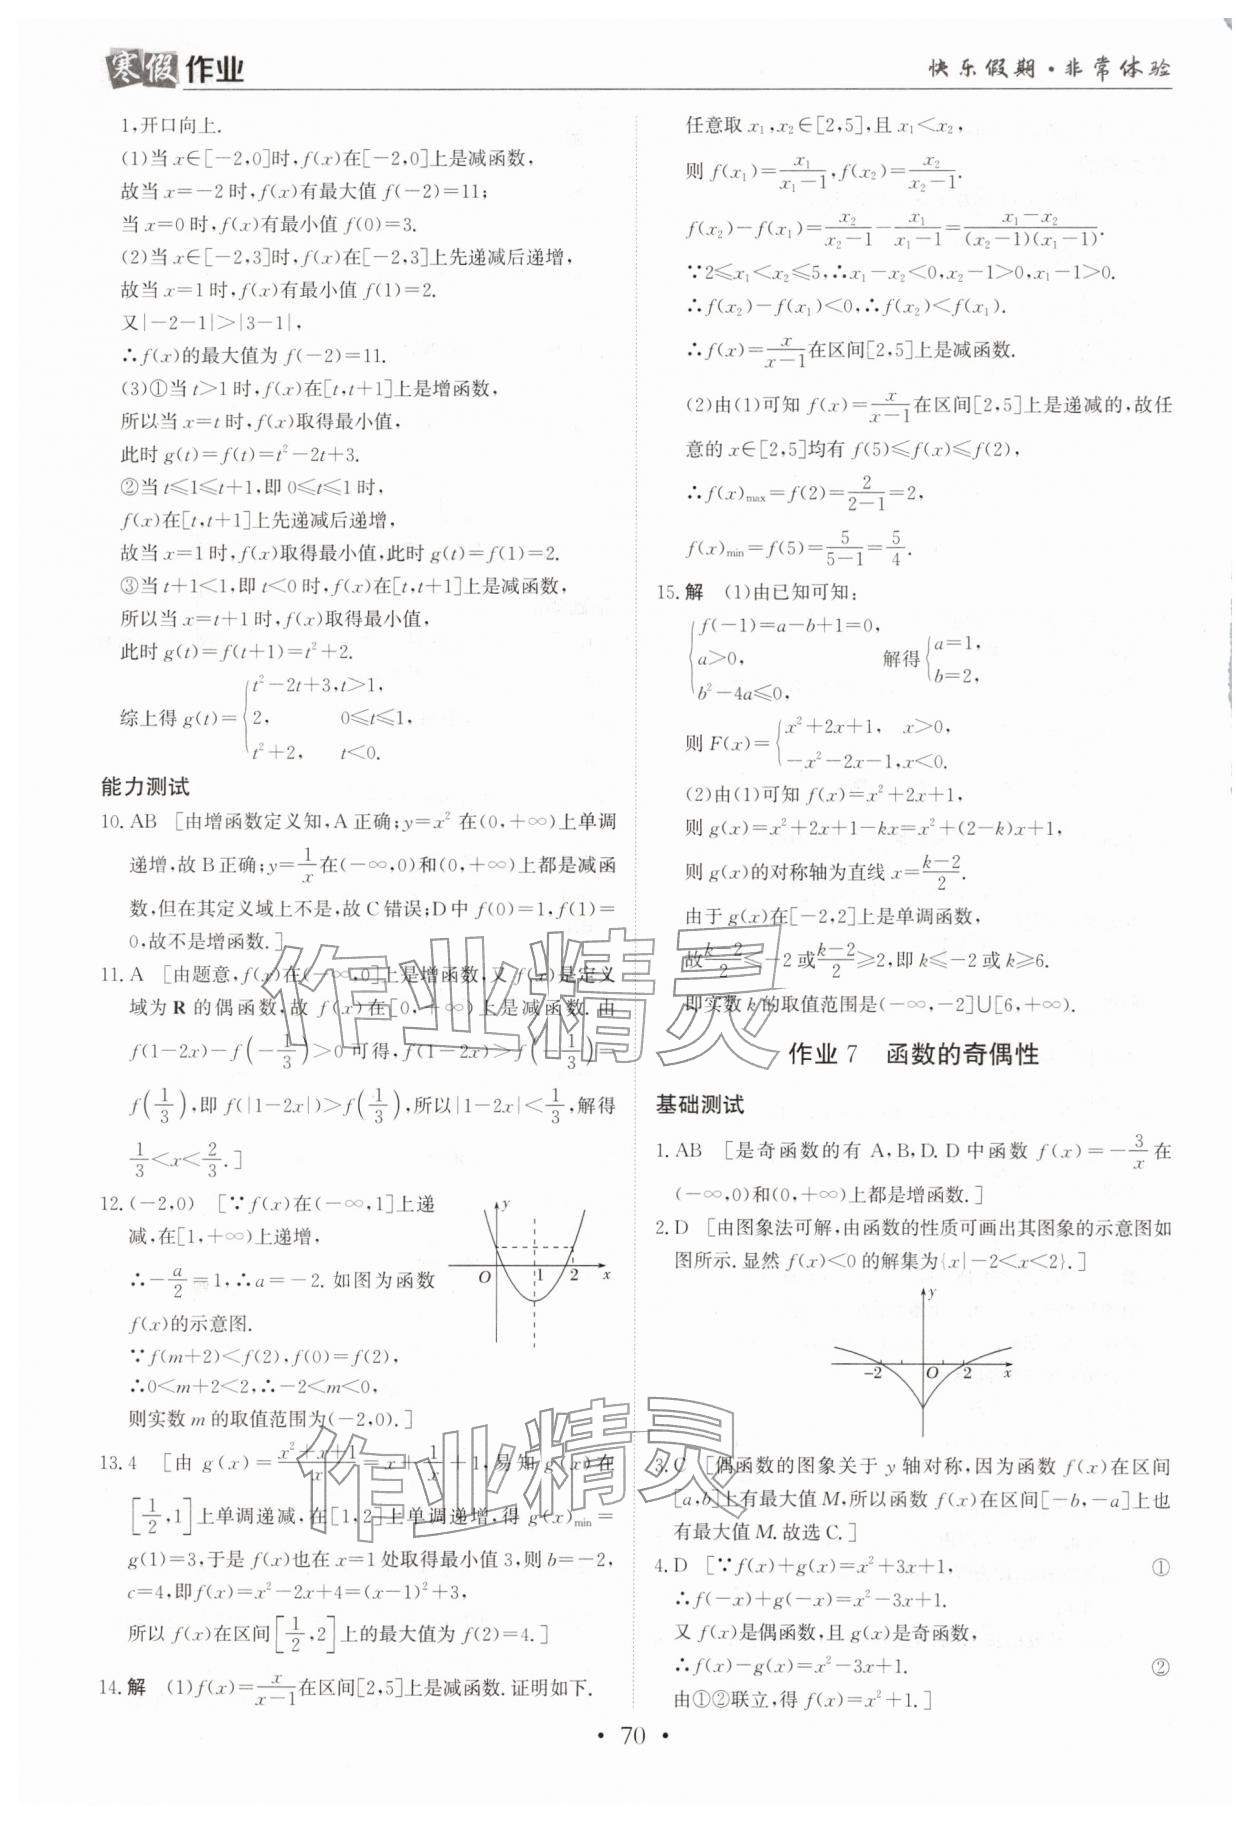 寒假作业
快乐假期·非常体验
1,开口向上.
(1)当 x∈[-2,0]时,f(x)在[-2,0]上是减函数,
故当 x=-2 时,f(x)有最大值 f(-2)=11;
当 x=0 时,f(x)有最小值 f(0)=3.
(2)当 x∈[-2,3]时,f(x)在[-2,3]上先递减后递增,
故当 x=1 时,f(x)有最小值 f(1)=2.
又|-2-1|>|3-1|,
∴f(x)的最大值为 f(-2)=11.
(3)①当 t>1 时,f(x)在[t,t+1]上是增函数,
所以当 x=t 时,f(x)取得最小值,
此时 g(t)=f(t)=t²-2t+3.
②当 t≤1≤t+1,即 0≤t≤1 时,
f(x)在[t,t+1]上先递减后递增,
故当 x=1 时,f(x)取得最小值,此时 g(t)=f(1)=2.
③当 t+1<1,即 t<0 时,f(x)在[t,t+1]上是减函数,
所以当 x=t+1 时,f(x)取得最小值,
此时 g(t)=f(t+1)=t²+2.
综上得 g(t)={t²-2t+3,t>1,
2, 0≤t≤1,
t²+2, t<0.
能力测试
10. AB [由增函数定义知,A 正确;y=x² 在(0,+∞)上单调
递增,故 B 正确;y=1/x 在(-∞,0)和(0,+∞)上都是减函
数,但在其定义域上不是,故 C 错误;D 中 f(0)=1,f(1)=
0,故不是增函数.]
11. A [由题意,f(x)在(-∞,0]上是增函数,又 f(x)是定义
域为 R 的偶函数,故 f(x)在[0,+∞)上是减函数.由
f(1-2x)-f(-1/3)>0 可得,f(1-2x)>f(-1/3)=
f(1/3),即 f(|1-2x|)>f(1/3),所以|1-2x|<1/3,解得
1/3<x<2/3.]
12. (-2,0) [∵f(x)在(-∞,1]上递
减,在[1,+∞)上递增,
∴-a/2=1,∴a=-2. 如图为函数
f(x)的示意图.
y
O 1 2 x
∵f(m+2)<f(2),f(0)=f(2),
∴0<m+2<2,∴-2<m<0,
则实数 m 的取值范围为(-2,0).]
13. 4 [由 g(x)=(x²+x+1)/x=x+1/x+1,易知 g(x)在
[1/2,1]上单调递减,在[1,2]上单调递增,得 g(x)min=
g(1)=3,于是 f(x)也在 x=1 处取得最小值 3,则 b=-2,
c=4,即 f(x)=x²-2x+4=(x-1)²+3,
所以 f(x)在区间[1/2,2]上的最大值为 f(2)=4.]
14. 解 (1)f(x)=x/(x-1)在区间[2,5]上是减函数. 证明如下.
任意取 x₁,x₂∈[2,5],且 x₁<x₂,
则 f(x₁)=x₁/(x₁-1),f(x₂)=x₂/(x₂-1).
f(x₂)-f(x₁)=x₂/(x₂-1)-x₁/(x₁-1)=(x₁-x₂)/((x₂-1)(x₁-1)).
∵2≤x₁<x₂≤5,∴x₁-x₂<0,x₂-1>0,x₁-1>0.
∴f(x₂)-f(x₁)<0,∴f(x₂)<f(x₁).
∴f(x)=x/(x-1)在区间[2,5]上是减函数.
(2)由(1)可知 f(x)=x/(x-1)在区间[2,5]上是递减的,故任
意的 x∈[2,5]均有 f(5)≤f(x)≤f(2),
∴f(x)max=f(2)=2/(2-1)=2,
f(x)min=f(5)=5/(5-1)=5/4.
15. 解 (1)由已知可知:
{f(-1)=a-b+1=0,
a>0, 解得{a=1,
b²-4a≤0, b=2,
则 F(x)={x²+2x+1, x>0,
-x²-2x-1,x<0.
(2)由(1)可知 f(x)=x²+2x+1,
则 g(x)=x²+2x+1-kx=x²+(2-k)x+1,
则 g(x)的对称轴为直线 x=(k-2)/2.
由于 g(x)在[-2,2]上是单调函数,
故(k-2)/2≤-2 或(k-2)/2≥2,即 k≤-2 或 k≥6.
即实数 k 的取值范围是(-∞,-2]∪[6,+∞).
作业 7 函数的奇偶性
基础测试
1. AB [是奇函数的有 A,B,D. D 中函数 f(x)=-3/x 在
(-∞,0)和(0,+∞)上都是增函数.]
2. D [由图象法可解,由函数的性质可画出其图象的示意图如
图所示. 显然 f(x)<0 的解集为{x|-2<x<2}.]
y
-2 O 2 x
3. C [偶函数的图象关于 y 轴对称,因为函数 f(x)在区间
[a,b]上有最大值 M,所以函数 f(x)在区间[-b,-a]上也
有最大值 M. 故选 C.]
4. D [∵f(x)+g(x)=x²+3x+1, ①
∴f(-x)+g(-x)=x²-3x+1.
又 f(x)是偶函数,且 g(x)是奇函数,
∴f(x)-g(x)=x²-3x+1. ②
由①②联立,得 f(x)=x²+1.]
作业精灵
作业精灵
• 70 •